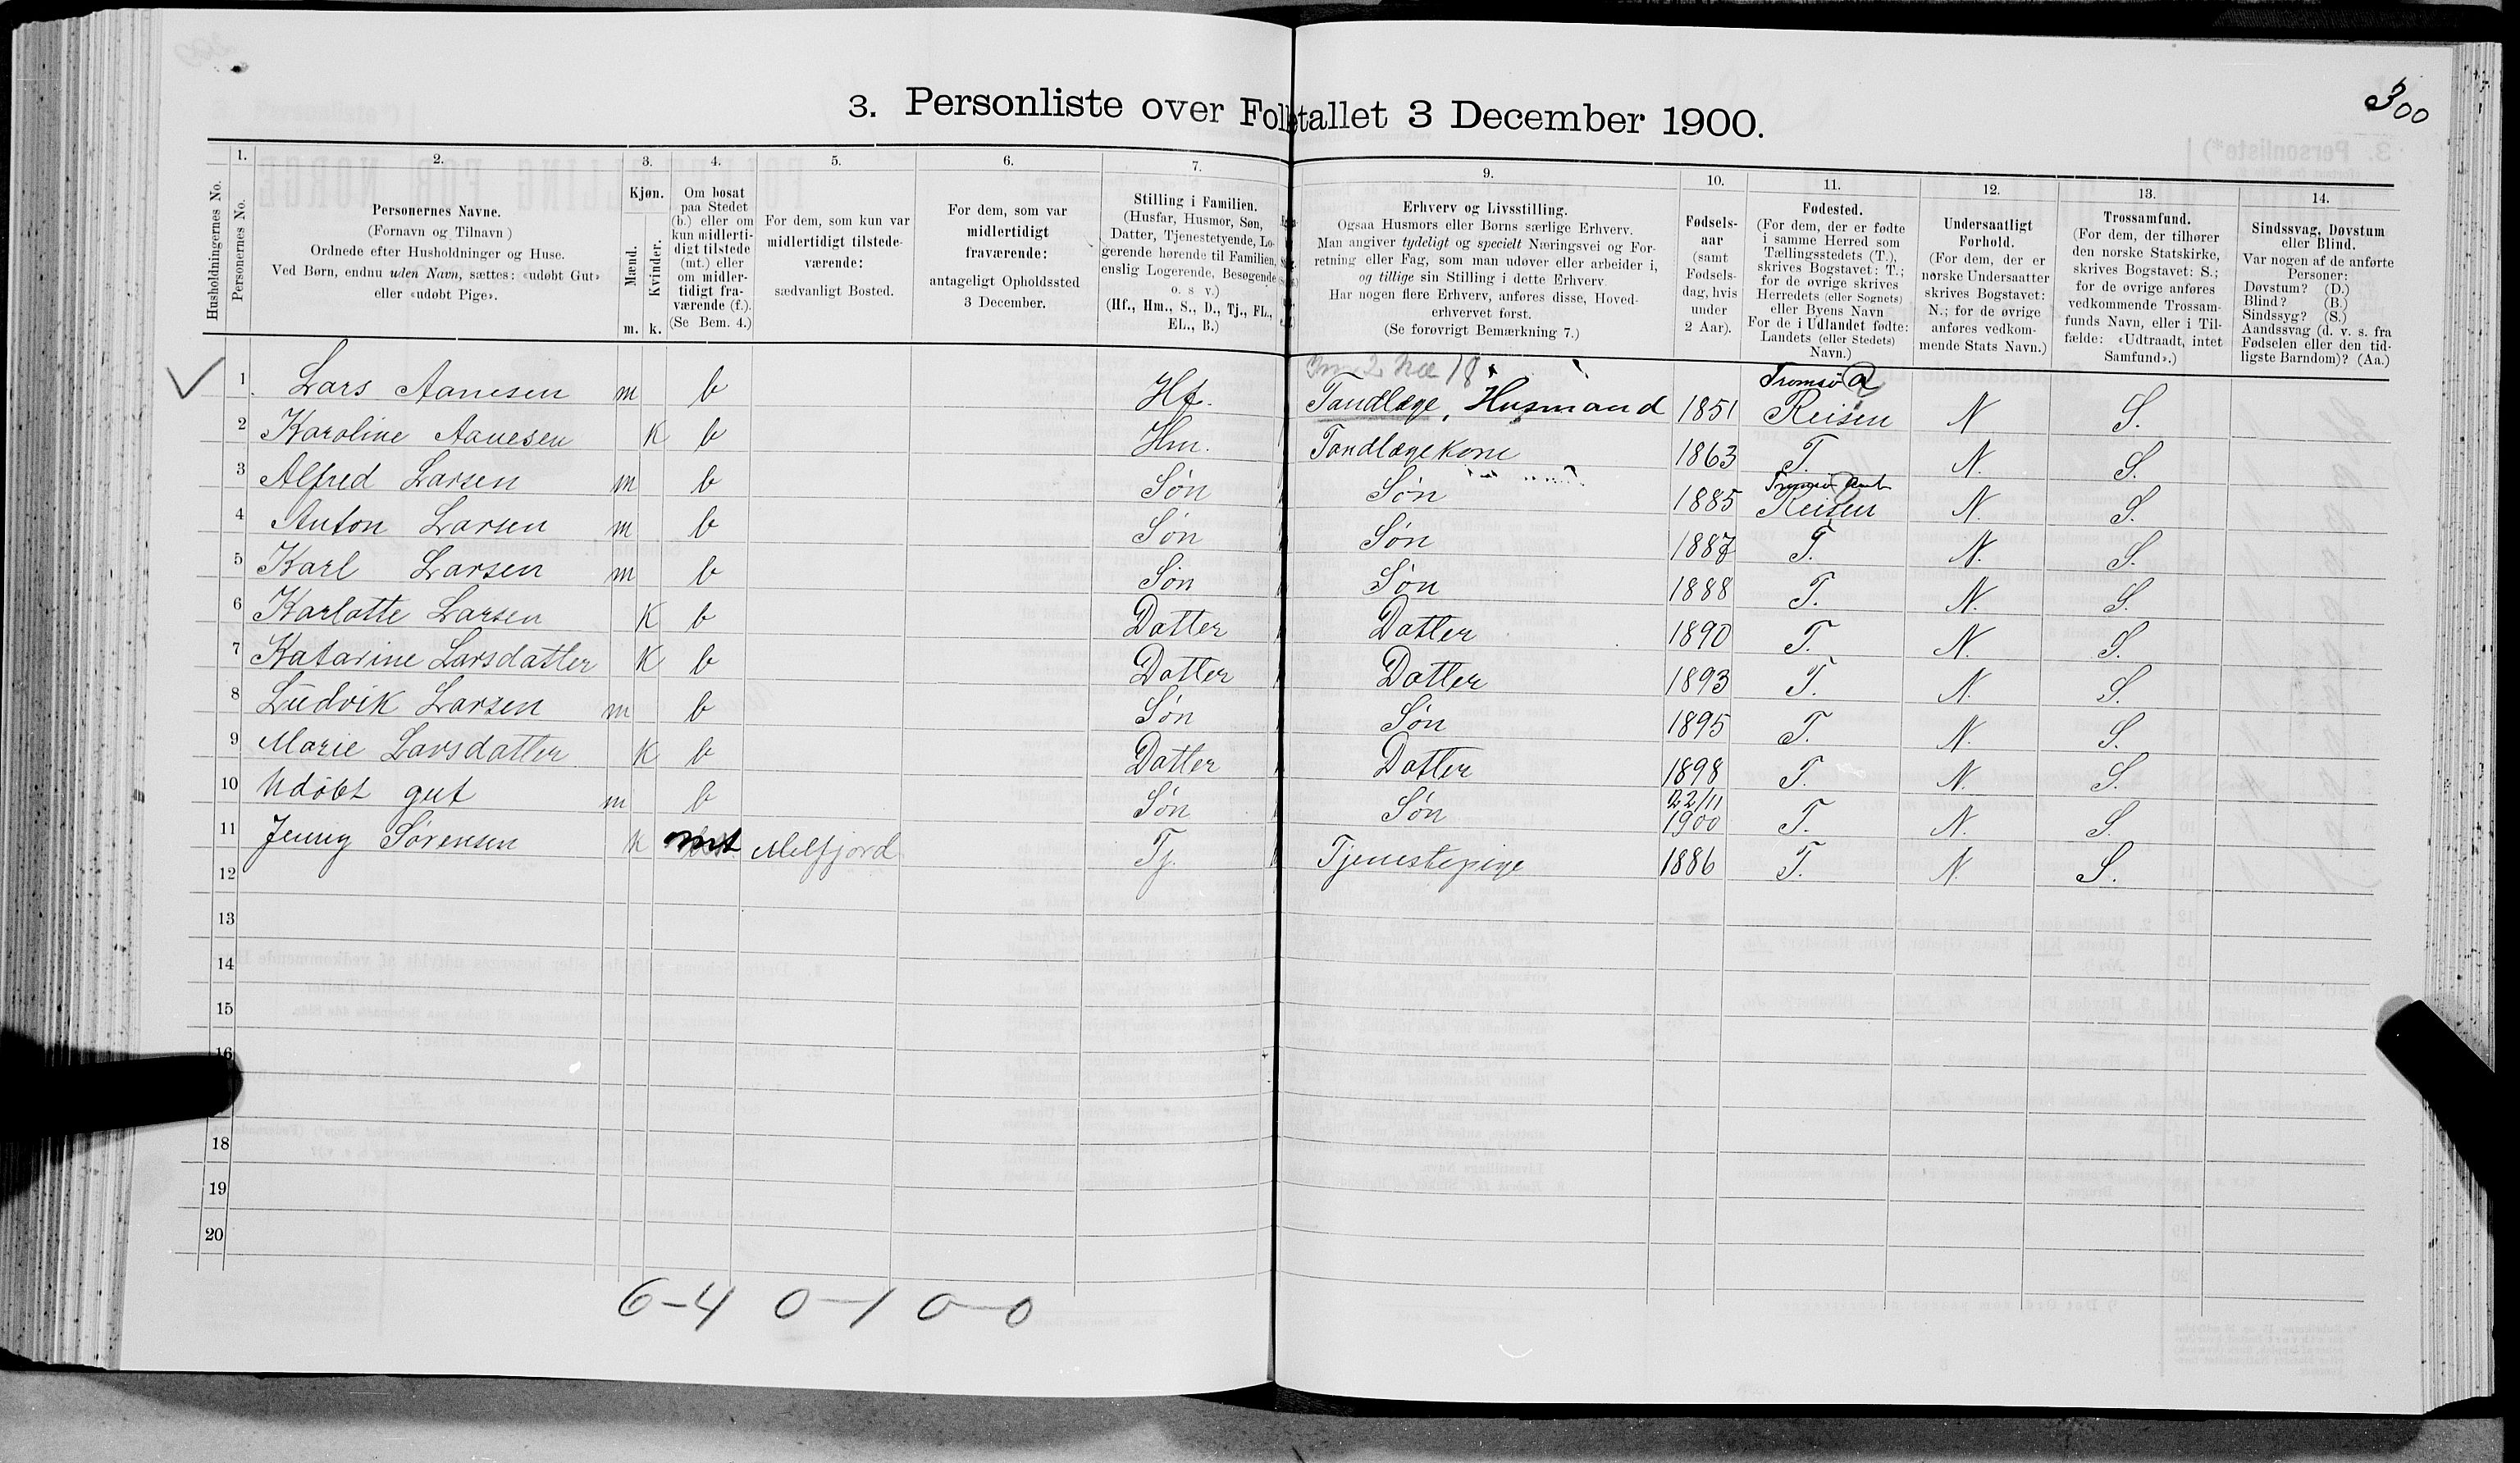 300
3. Personliste over Folketallet 3 December 1900.
Husholdningernes No.
1. Personernes No.
2. Personernes Navne.
(Fornavn og Tilnavn)
Ordnede efter Husholdninger og Huse.
Ved Børn, endnu uden Navn, sættes: «udøbt Gut»
eller «udøbt Pige».
3. Kjøn.
Mænd. m.
Kvinder. k.
4. Om bosat
paa Stedet
(b.) eller om
kun midlerti-
digt tilstede
(mt.) eller
om midler-
tidigt fra-
værende (f.).
(Se Bem. 4.)
5. For dem, som kun var
midlertidigt tilstede-
værende:
sædvanligt Bosted.
6. For dem, som var
midlertidigt
fraværende:
antageligt Opholdssted
3 December.
7. Stilling i Familien.
(Husfar, Husmor, Søn,
Datter, Tjenestetyende, Lo-
gerende hørende til Familien,
enslig Logerende, Besøgende
o. s v.)
(Hf., Hm., S., D., Tj., FL.,
EL., B.)
9. Erhverv og Livsstilling.
Ogsaa Husmors eller Børns særlige Erhverv.
Man angiver tydeligt og specielt Næringsvei og For-
retning eller Fag, som man udøver eller arbeider i,
og tillige sin Stilling i dette Erhverv.
Har nogen flere Erhverv, anføres disse, Hoved-
erhvervet først.
(Se forøvrigt Bemærkning 7.)
10. Fødsels-
aar
(samt
Fødsels-
dag, hvis
under
2 Aar).
11. Fødested.
(For dem, der er fødte
i samme Herred som
Tællingsstedets (T.),
skrives Bogstavet: T.;
for de øvrige skrives
Herredets (eller Sognets)
eller Byens Navn
For de i Udlandet fødte:
Landets (eller Stedets)
Navn.)
12. Undersaatligt
Forhold.
(For dem, der er
norske Undersaatter
skrives Bogstavet:
N.; for de øvrige
anføres vedkom-
mende Stats Navn.)
13. Trossamfund.
(For dem, der tilhører
den norske Statskirke,
skrives Bogstavet: S.;
for de øvrige anføres
vedkommende Trossam-
funds Navn, eller i Til-
fælde: «Udtraadt, intet
Samfund».)
14. Sindssvag, Døvstum
eller Blind.
Var nogen af de anførte
Personer:
Døvstum? (D.)
Blind? (B.)
Sindssyg? (S.)
Aandssvag (d. v. s. fra
Fødselen eller den tid-
ligste Barndom)? (Aa.)
Tromsø a
1 Lars Aanesen m b Hf. Tandlæge, Husmand 1851 Reisen N S.
2 Karoline Aanesen K b Hm. Tandlægekone 1863 T. N. S.
Tromsø Amt
3 Alfred Larsen m b Søn Søn 1885 Reisen N. S.
4 Anton Larsen m b Søn Søn 1887 T. N. S.
5 Karl Larsen m b Søn Søn 1888 T. N. S.
6 Karlotte Larsen K b Datter Datter 1890 T. N. S.
7 Katarine Larsdatter K b Datter Datter 1893 T. N. S.
8 Ludvik Larsen m b Søn Søn 1895 T. N. S.
9 Marie Larsdatter K b Datter Datter 1898 T. N. S.
10 Udøbt gut m b Søn Søn 22/11 1900 T. N. S.
11 Jenny Sørensen K mt Melfjord Tj. Tjenestepige 1886 T. N. S.
12
13
14
15
16
18
19
20
6-4 0-1 0-0